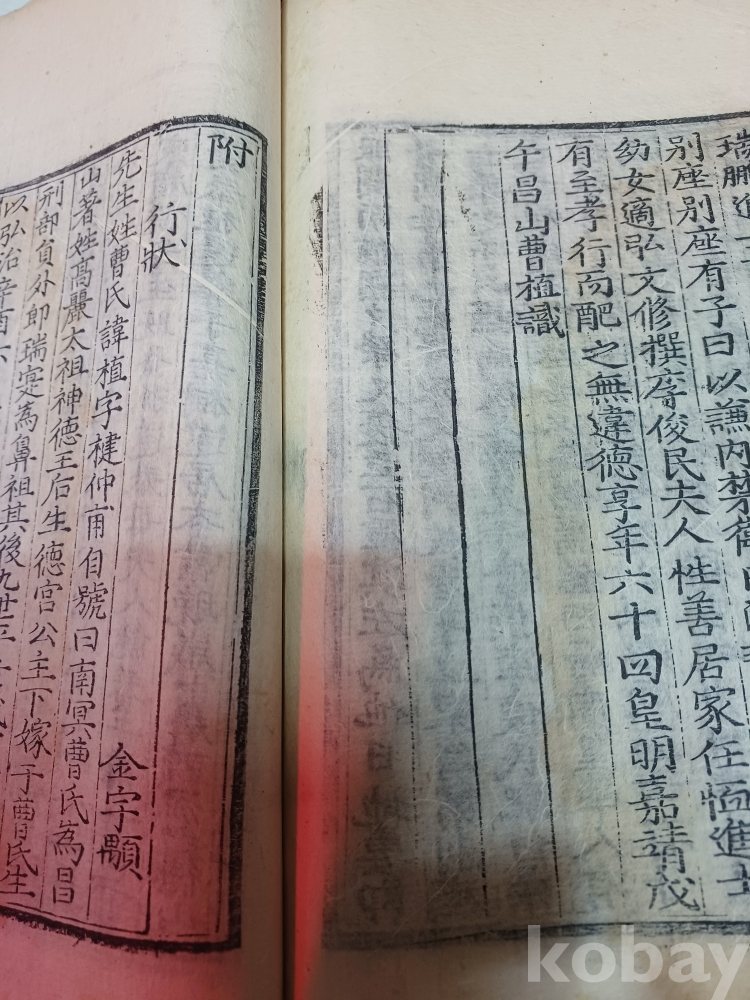 瑞鵬進
別座別座有子曰以謙內禁衛
幼女適弘文修撰李俊民夫人性善居家任恤進士
有至孝行而配之無違德享年六十四皇明嘉靖戊
午昌山曹植識
附
行狀 金宇顒
先生姓曹氏諱植字楗仲甫自號曰南冥曹氏為昌
山著姓高麗太祖神德王后生德宮公主下嫁于曹氏生
刑部員外郎瑞寔為鼻祖其後九世平
以弘治辛酉六
kobay